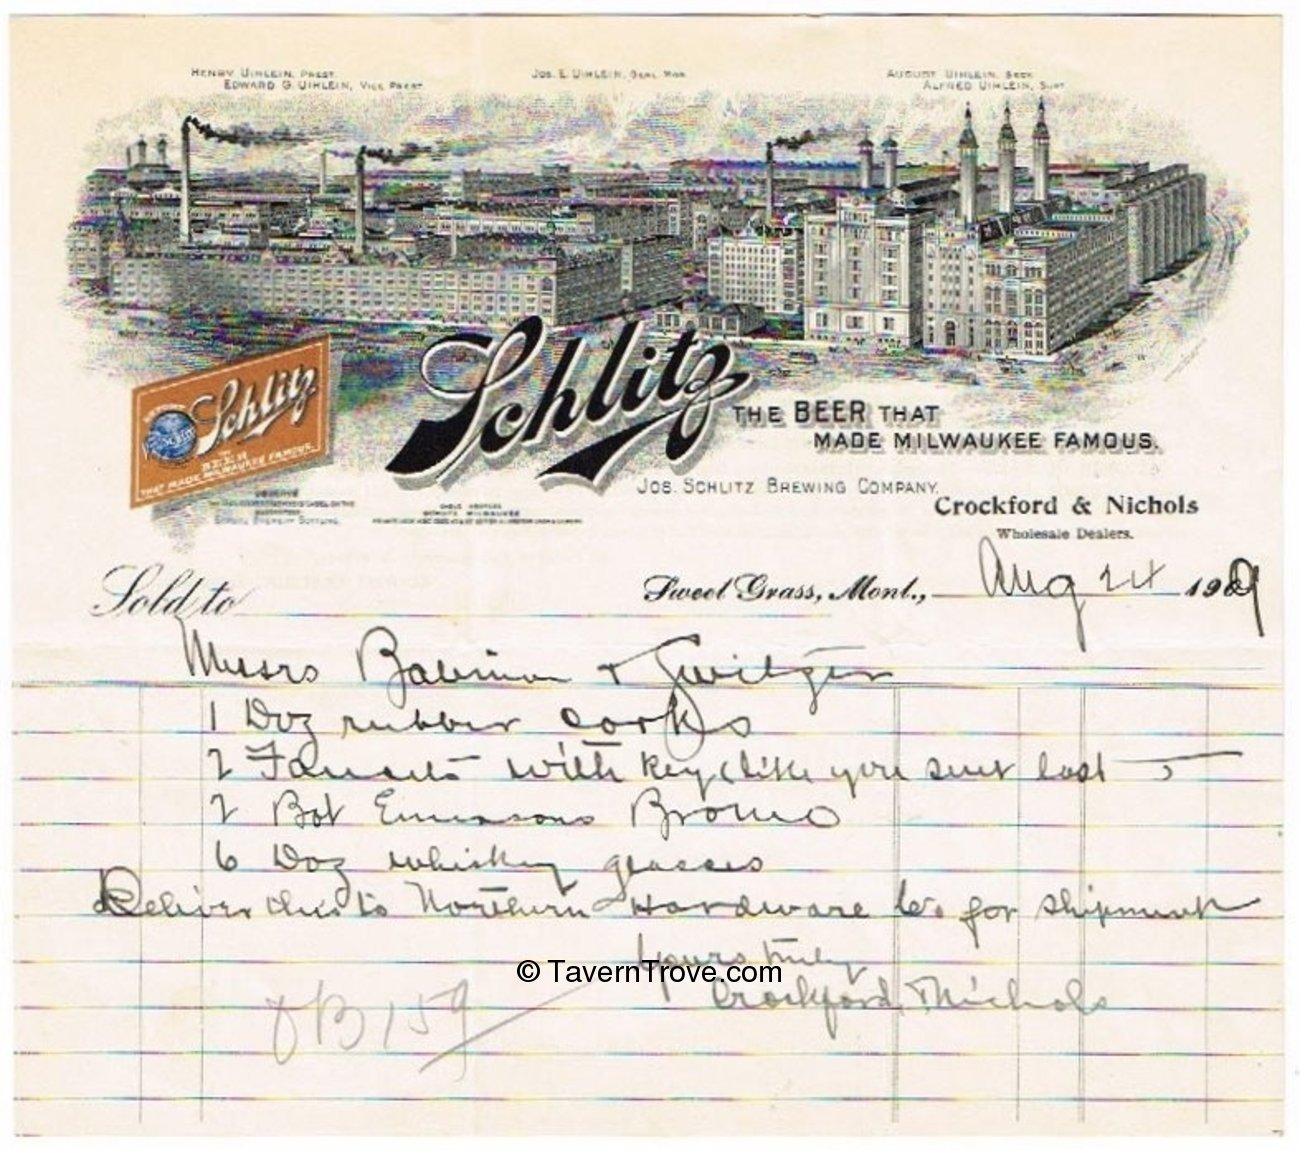 Henry Uihlein, Prest.
Edward G. Uihlein, Vice Prest.
Jos. E. Uihlein, Genl. Man.
August Uihlein, Secy.
Alfred Uihlein, Supt.
Schlitz
THE BEER
THAT MADE MILWAUKEE FAMOUS.
Schlitz
THE BEER THAT
MADE MILWAUKEE FAMOUS.
Jos. Schlitz Brewing Company.
Crockford & Nichols
Wholesale Dealers.
Sold to
Sweet Grass, Mont., Aug 24 1909
Messrs &
1 Doz rubber corks
2 Faucets with key (like you sent last
2 Bot Emersons Bromo
6 Doz whiskey glasses
Deliver this to Northern Hardware Co for shipment
Yours truly
Crockford & Nichols
© TavernTrove.com